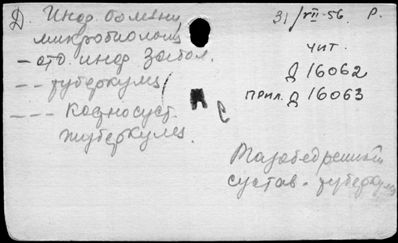 Д Инф. болезни
31/VII-56. Р.
микробиолог
- отд. инф. забол.
-- туберкулез
--- Костносуст.
туберкулез.
чит.
Д 16062
прил. Д 16063
Тазобедренный
сустав - туберкулез